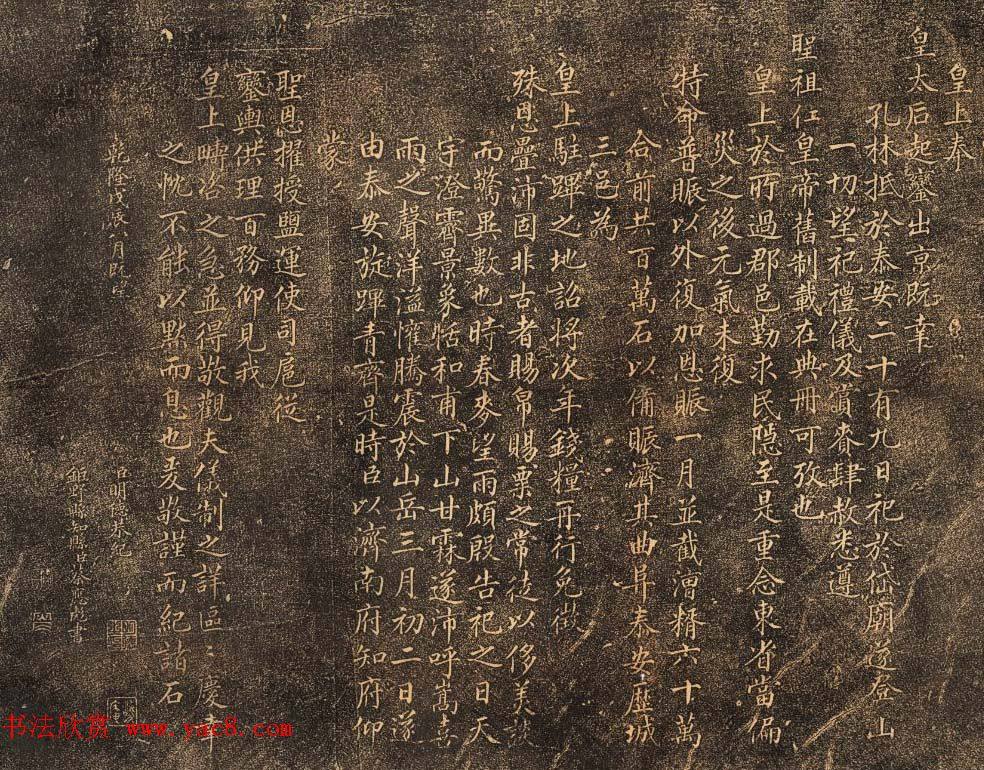 皇上奉
皇太后起鑾出京既幸
孔林抵於泰安二十有九日祀於岱廟遂登山
一切望祀禮儀及賞賚肆赦悉遵
聖祖仁皇帝舊制載在典冊可攷也
皇上於所過郡邑勤求民隱至是重念東省當偏
災之後元氣未復
特命普賑以外復加恩賑一月並截漕糈六十萬
合前共百萬石以備賑濟其曲阜泰安歷城
三邑為
皇上駐蹕之地詔將次年錢糧再行免徵
殊恩疊沛固非古者賜帛賜粟之常徒以侈美談
而驚異數也時春麥望雨頗殷告祀之日天
宇澄霽景象恬和甫下山甘霖遂沛呼嵩喜
雨之聲洋溢懽騰震於山岳三月初二日遂
由泰安旋蹕青齊是時臣以濟南府知府仰
蒙
聖恩擢授鹽運使司扈從
鑾輿供理百務仰見我
皇上疇咨之急並得敬觀夫儀制之詳區區慶幸
之忱不能以默而息也爰敬謹而紀諸石
乾隆戊辰八月既望
臣明德恭紀
鉅野縣知縣 書
书法欣赏 www.yac8.com